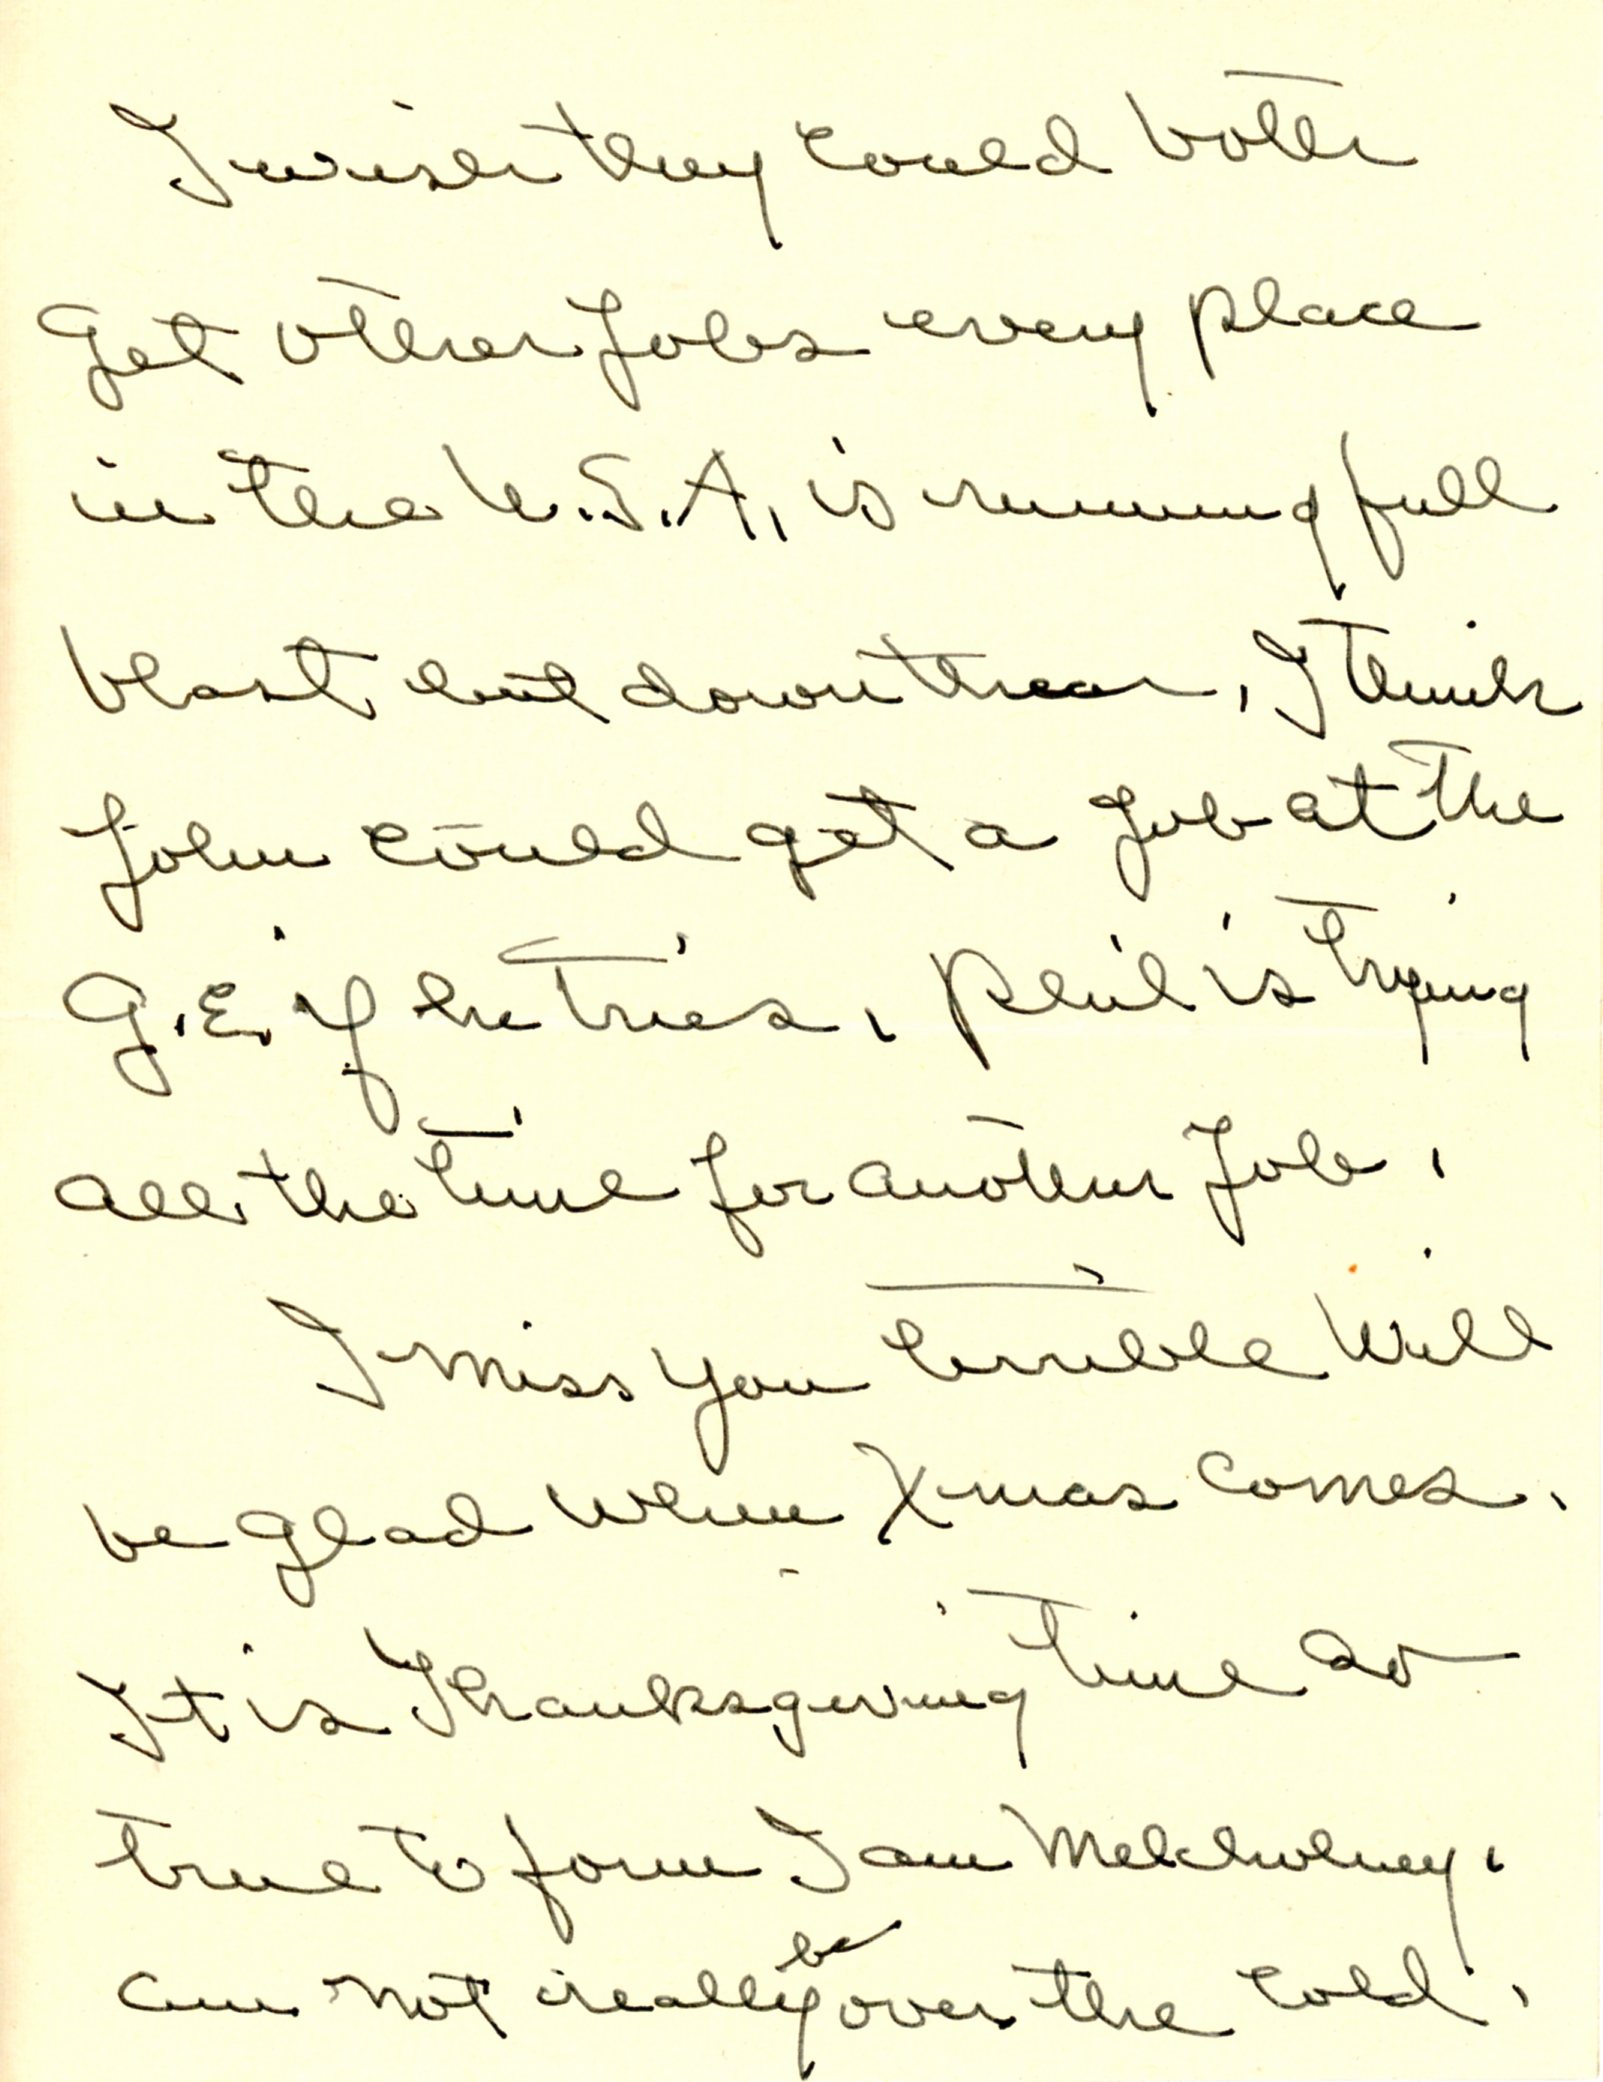 I wish they could both
get other Jobs every place
in the U.S.A. is running full
blast but down thear. I think
John could get a Job at the
G.E. if he tries. Phil is trying
all the time for another Job.
I miss you terrible Will
be glad when X-mas comes.
It is Thanksgiving time so
true to form I am Melcholney.
be
am not really over the cold.